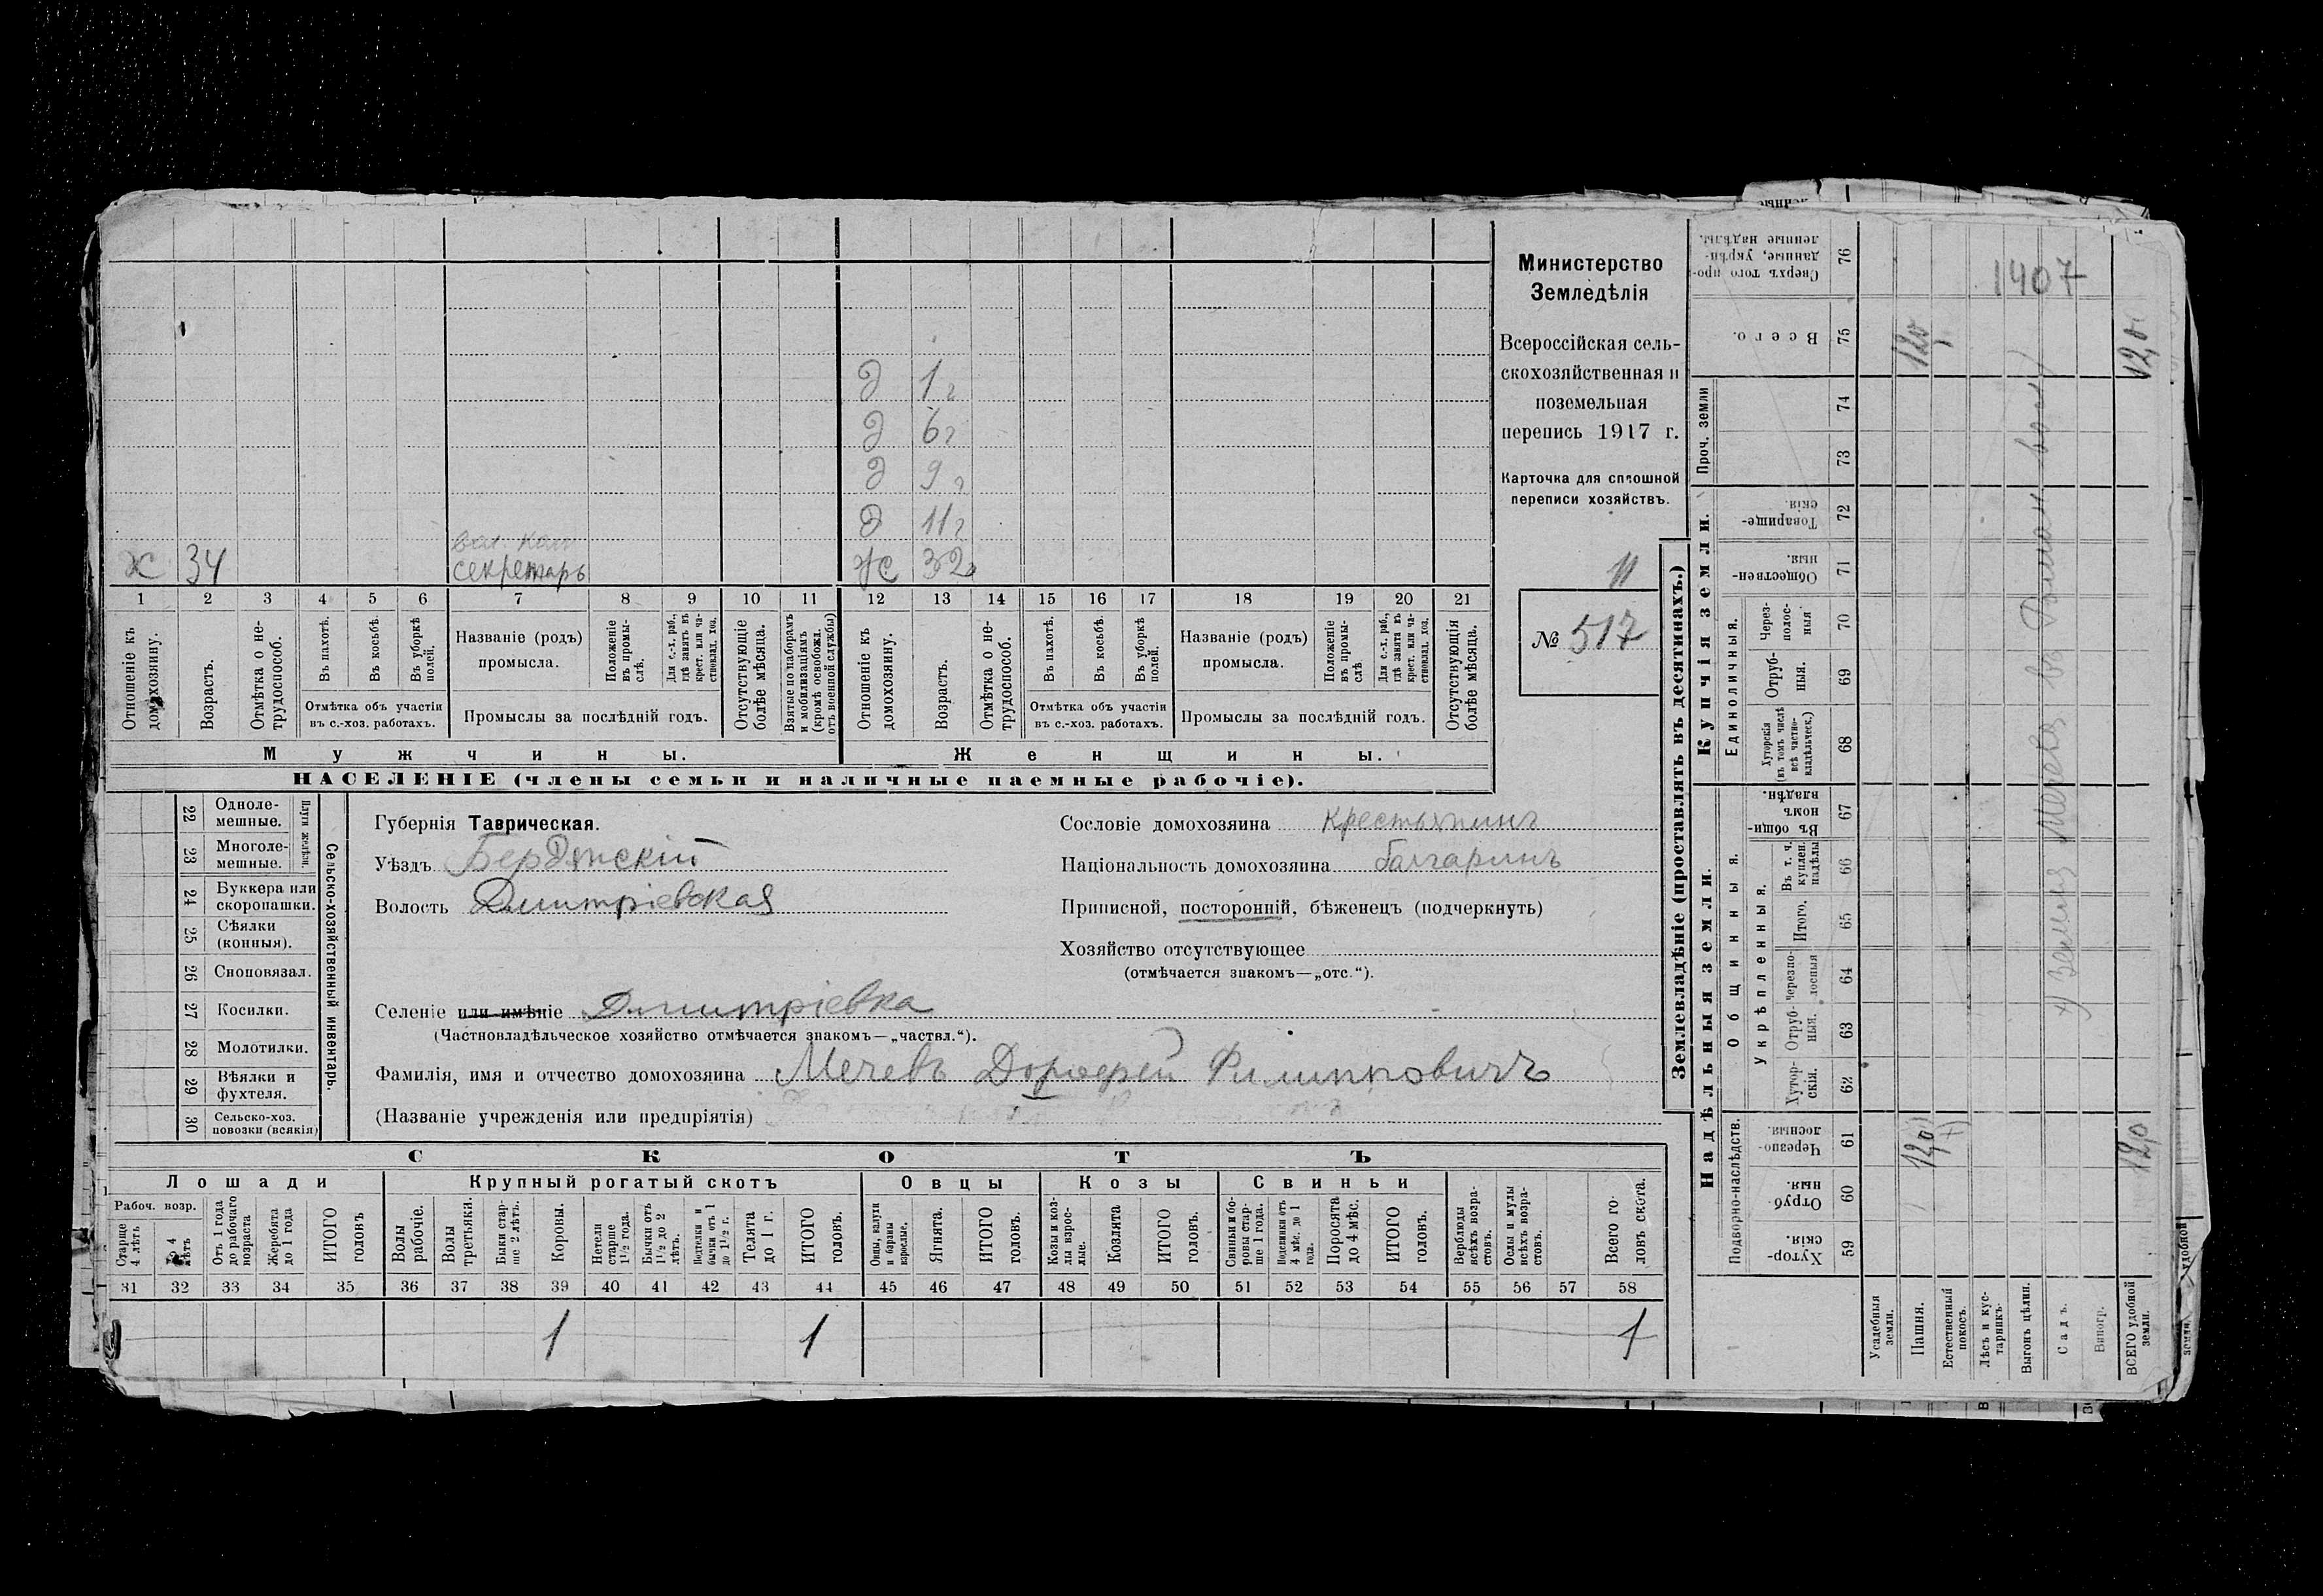 Министерство
Земледѣлія
Всероссійская сель-
скохозяйственная и
поземельная
перепись 1917 г.
Карточка для сплошной
переписи хозяйствъ.
11
№ 517
д 1 г
д 6 г
д 9 г
д 11 г
х 34 секретарь ж 32
1 2 3 4 5 6 7 8 9 10 11 12 13 14 15 16 17 18 19 20 21
Отношеніе къ домохозяину.
Возрастъ.
Отмѣтка о не-трудоспособ.
Въ пахотѣ.
Въ косьбѣ.
Въ уборкѣ полей.
Отмѣтка объ участіи
въ с.-хоз. работахъ.
Названіе (родъ)
промысла.
Положеніе въ промы-слѣ.
Для с.-х. раб., гдѣ занятъ въ крест. или ча-стновлад. хоз.
Промыслы за послѣдній годъ.
Отсутствующіе болѣе мѣсяца.
Взятые по наборамъ и мобилизаціямъ (кромѣ освобожд. отъ военной службы)
Отношеніе къ домохозяину.
Возрастъ.
Отмѣтка о не-трудоспособ.
Въ пахотѣ.
Въ косьбѣ.
Въ уборкѣ полей.
Отмѣтка объ участіи
въ с.-хоз. работахъ.
Названіе (родъ)
промысла.
Положеніе въ промы-слѣ
Для с.-х. раб., гдѣ занята въ крест. или ча-стновлад. хоз.
Промыслы за послѣдній годъ.
Отсутствующія болѣе мѣсяца.
Мужчины. Женщины.
НАСЕЛЕНІЕ (члены семьи и наличные наемные рабочіе).
Сельско-хозяйственный инвентарь.
Плуги желѣзн.
22 Одноле-мешные.
23 Многоле-мешные.
24 Буккера или скоропашки.
25 Сѣялки (конныя).
26 Сноповязал.
27 Косилки.
28 Молотилки.
29 Вѣялки и фухтеля.
30 Сельско-хоз. повозки (всякія)
Губернія Таврическая.
Уѣздъ Бердянскій
Волость Дмитріевская
Сословіе домохозяина крестьянинъ
Національность домохозяина болгаринъ
Приписной, посторонній, бѣженецъ (подчеркнуть)
Хозяйство отсутствующее
(отмѣчается знакомъ—„отс.“).
Селеніе или имѣніе Дмитріевка
(Частновладѣльческое хозяйство отмѣчается знакомъ—„частвл.“).
Фамилія, имя и отчество домохозяина Мечевъ Дорофей Филипповичъ
(Названіе учрежденія или предпріятія)
СКОТЪ
Лошади Крупный рогатый скотъ Овцы Козы Свиньи
Рабоч. возр.
Старше 4 лѣтъ
до 4 лѣтъ
Отъ 1 года до рабочаго возраста
Жеребята до 1 года
ИТОГО головъ
Волы рабочіе.
Волы третьяки.
Быки стар-ше 2 лѣтъ.
Коровы.
Нетели старше 1½ года.
Бычки отъ 1½ до 2 лѣтъ.
Подтелки и бычки отъ 1 до 1½ г.
Телята до 1 г.
ИТОГО головъ.
Овцы, валухи и бараны взрослые.
Ягнята.
ИТОГО головъ.
Козы и коз-лы взрос-лые.
Козлята
ИТОГО головъ.
Свиньи и бо-ровы стар-ше 1 года.
Подсвинки отъ 4 мѣс. до 1 года.
Поросята до 4 мѣс.
ИТОГО головъ.
Верблюды всѣхъ возра-стовъ.
Ослы и мулы всѣхъ возра-стовъ.
Всего го-ловъ скота.
31 32 33 34 35 36 37 38 39 40 41 42 43 44 45 46 47 48 49 50 51 52 53 54 55 56 57 58
1 1 1
Землевладѣніе (проставлять въ десятинахъ.)
Надѣльныя земли. Купчія земли. Проч. земли
Подворно-наслѣдств.
Общинныя.
Укрѣпленныя.
Единоличныя.
Хутор-скія. 59
Отруб-ныя. 60
Черезпо-лосныя. 61
Хутор-скія. 62
Отруб-ныя. 63
Черезпо-лосныя 64
Итого. 65
Въ т. ч. куплен. надѣлы 66
Въ общи-номъ владѣн. 67
Хуторскія (въ томъ числѣ всѣ частно-владѣльческ.) 68
Отруб-ныя. 69
Черезполос-ныя 70
Обществен-ныя 71
Товарище-скія. 72
73
74
Всего. 75
Сверхъ того про-данные, укрѣп-ленные надѣлы. 76
Усадебныя земли.
Пашня. 12,0 12,0
Естественный покосъ.
Лѣсъ и кус-тарникъ.
Выгонъ цѣлин.
Садъ.
Виногр.
ВСЕГО удобной земли. 12,0 12,0
1407